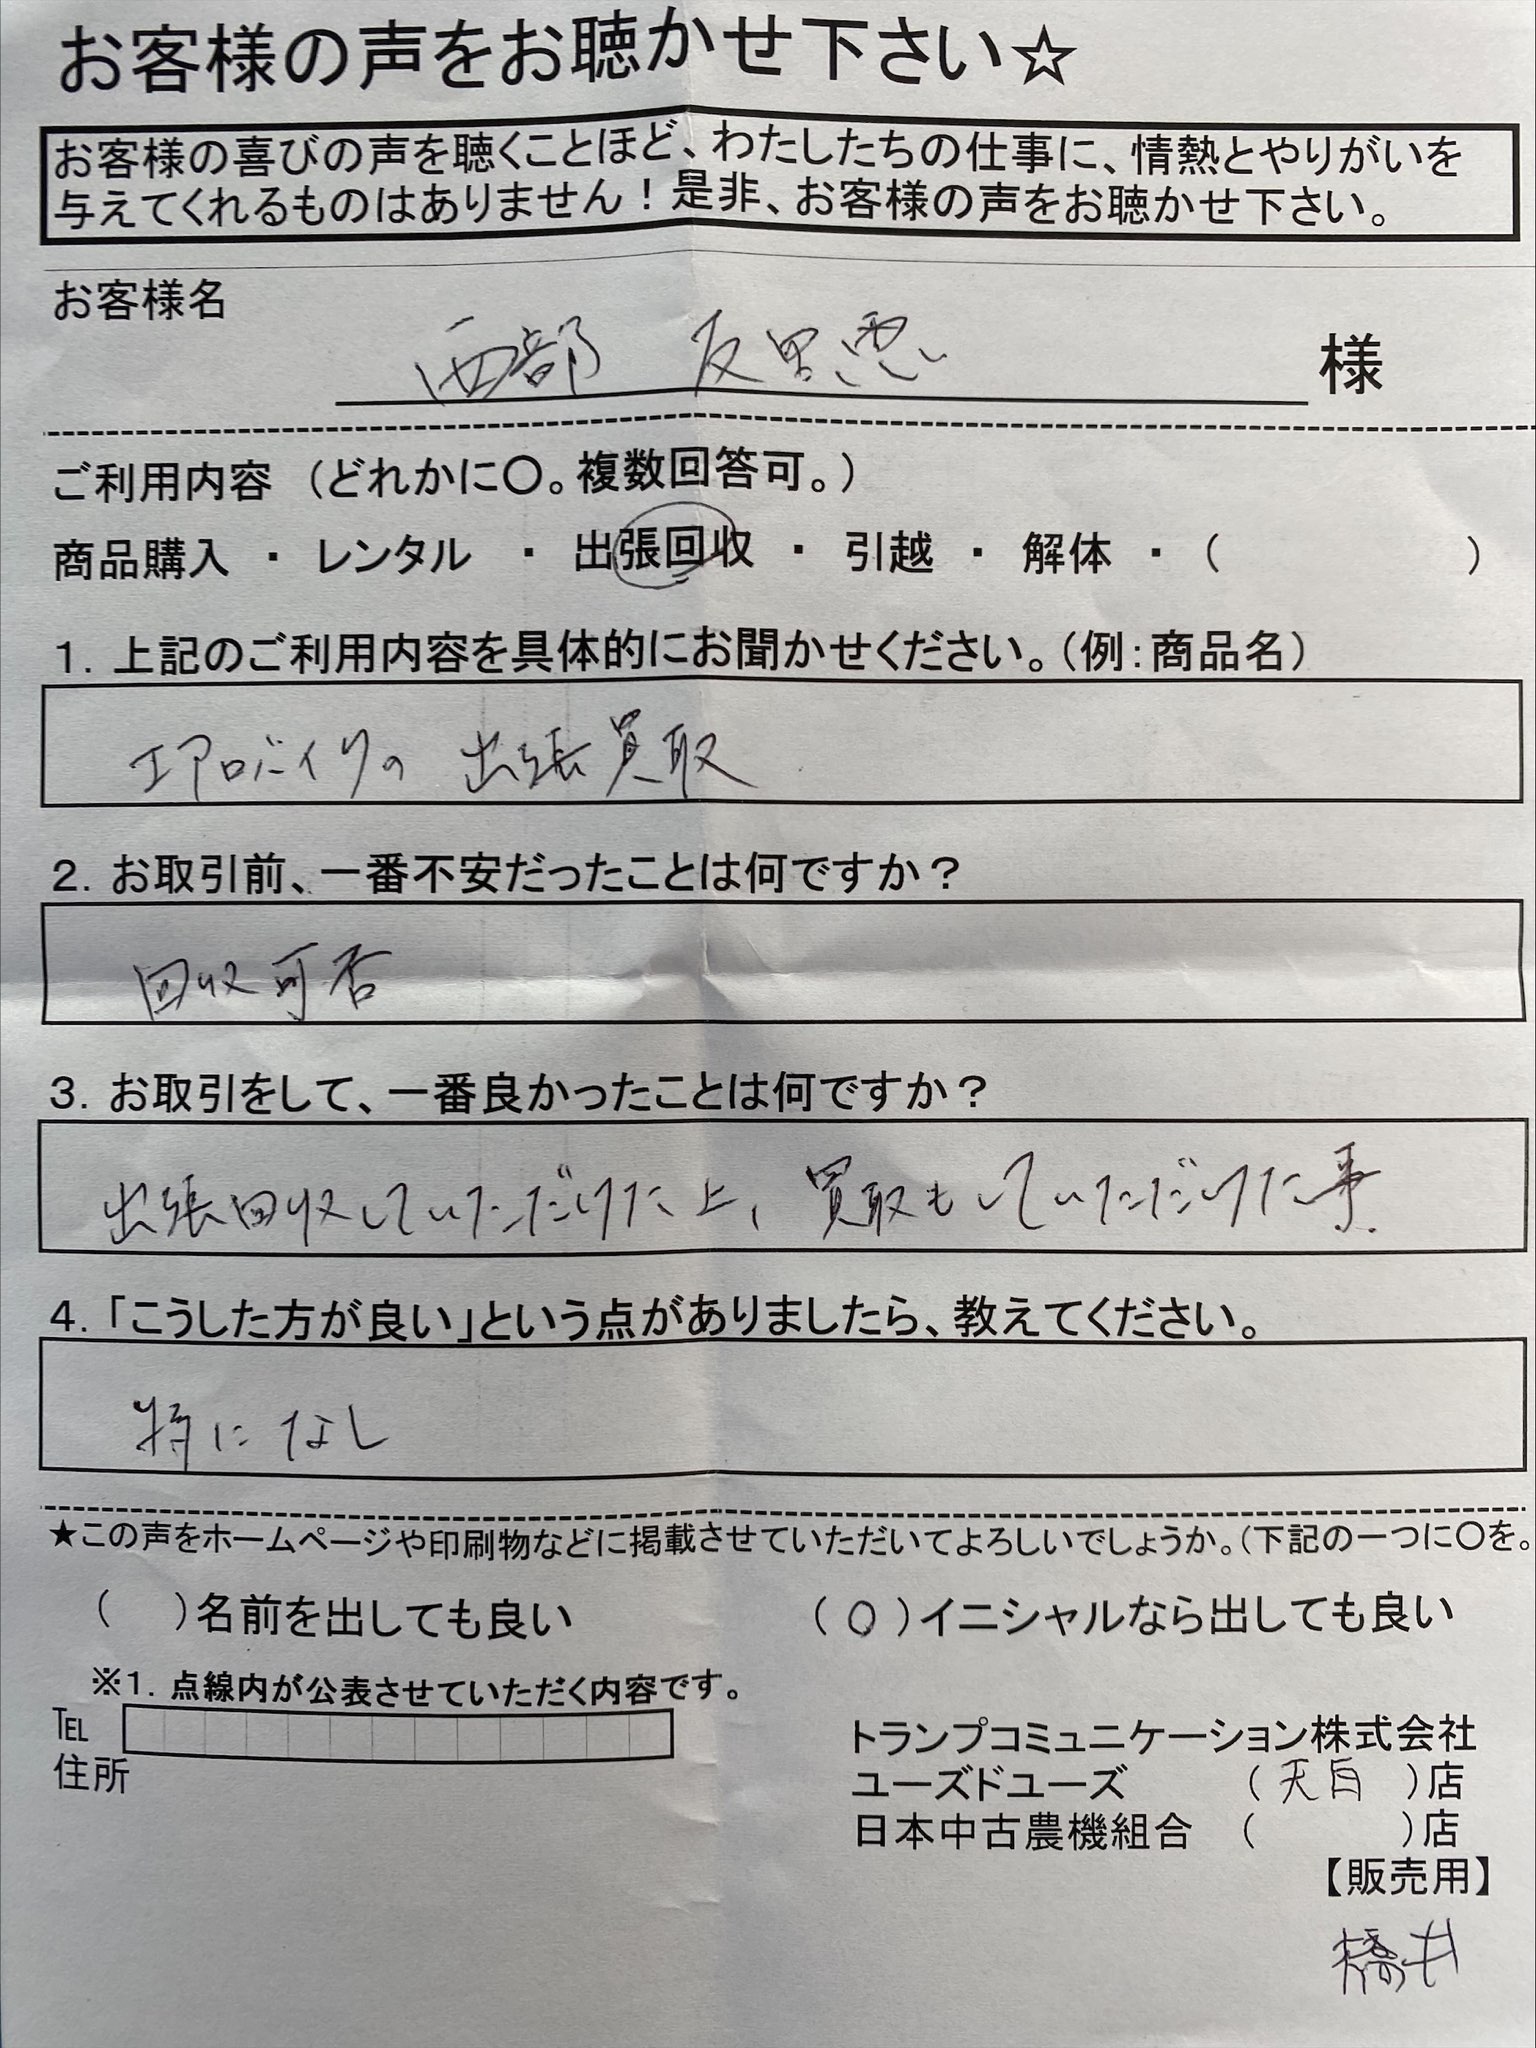 お客様の声をお聴かせ下さい☆
お客様の喜びの声を聴くことほど、わたしたちの仕事に、情熱とやりがいを
与えてくれるものはありません！是非、お客様の声をお聴かせ下さい。
お客様名
西部 友里恵 様
ご利用内容 （どれかに〇。複数回答可。）
商品購入 ・ レンタル ・ 出張回収 ・ 引越 ・ 解体 ・（ ）
1. 上記のご利用内容を具体的にお聞かせください。（例：商品名）
エアロバイクの 出張買取
2. お取引前、一番不安だったことは何ですか？
回収可否
3. お取引をして、一番良かったことは何ですか？
出張回収していただけた上、買取もしていただけた事.
4. 「こうした方が良い」という点がありましたら、教えてください。
特になし
★この声をホームページや印刷物などに掲載させていただいてよろしいでしょうか。（下記の一つに〇を。
（ ）名前を出しても良い （〇）イニシャルなら出しても良い
※1. 点線内が公表させていただく内容です。
TEL
住所
トランプコミュニケーション株式会社
ユーズドユーズ （天白 ）店
日本中古農機組合 （ ）店
【販売用】
橋井